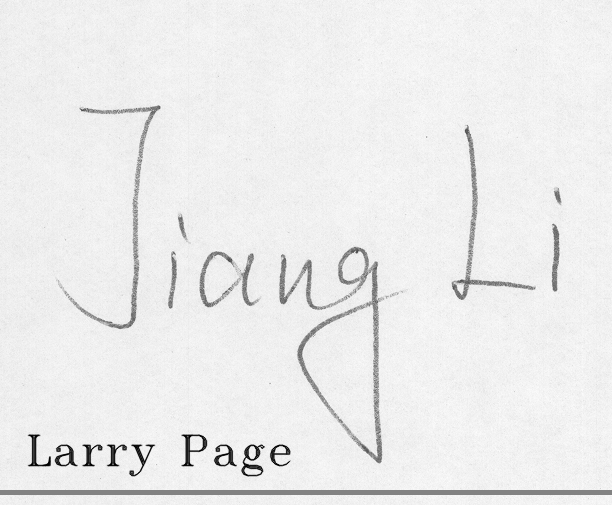 Jiang Li
Larry Page